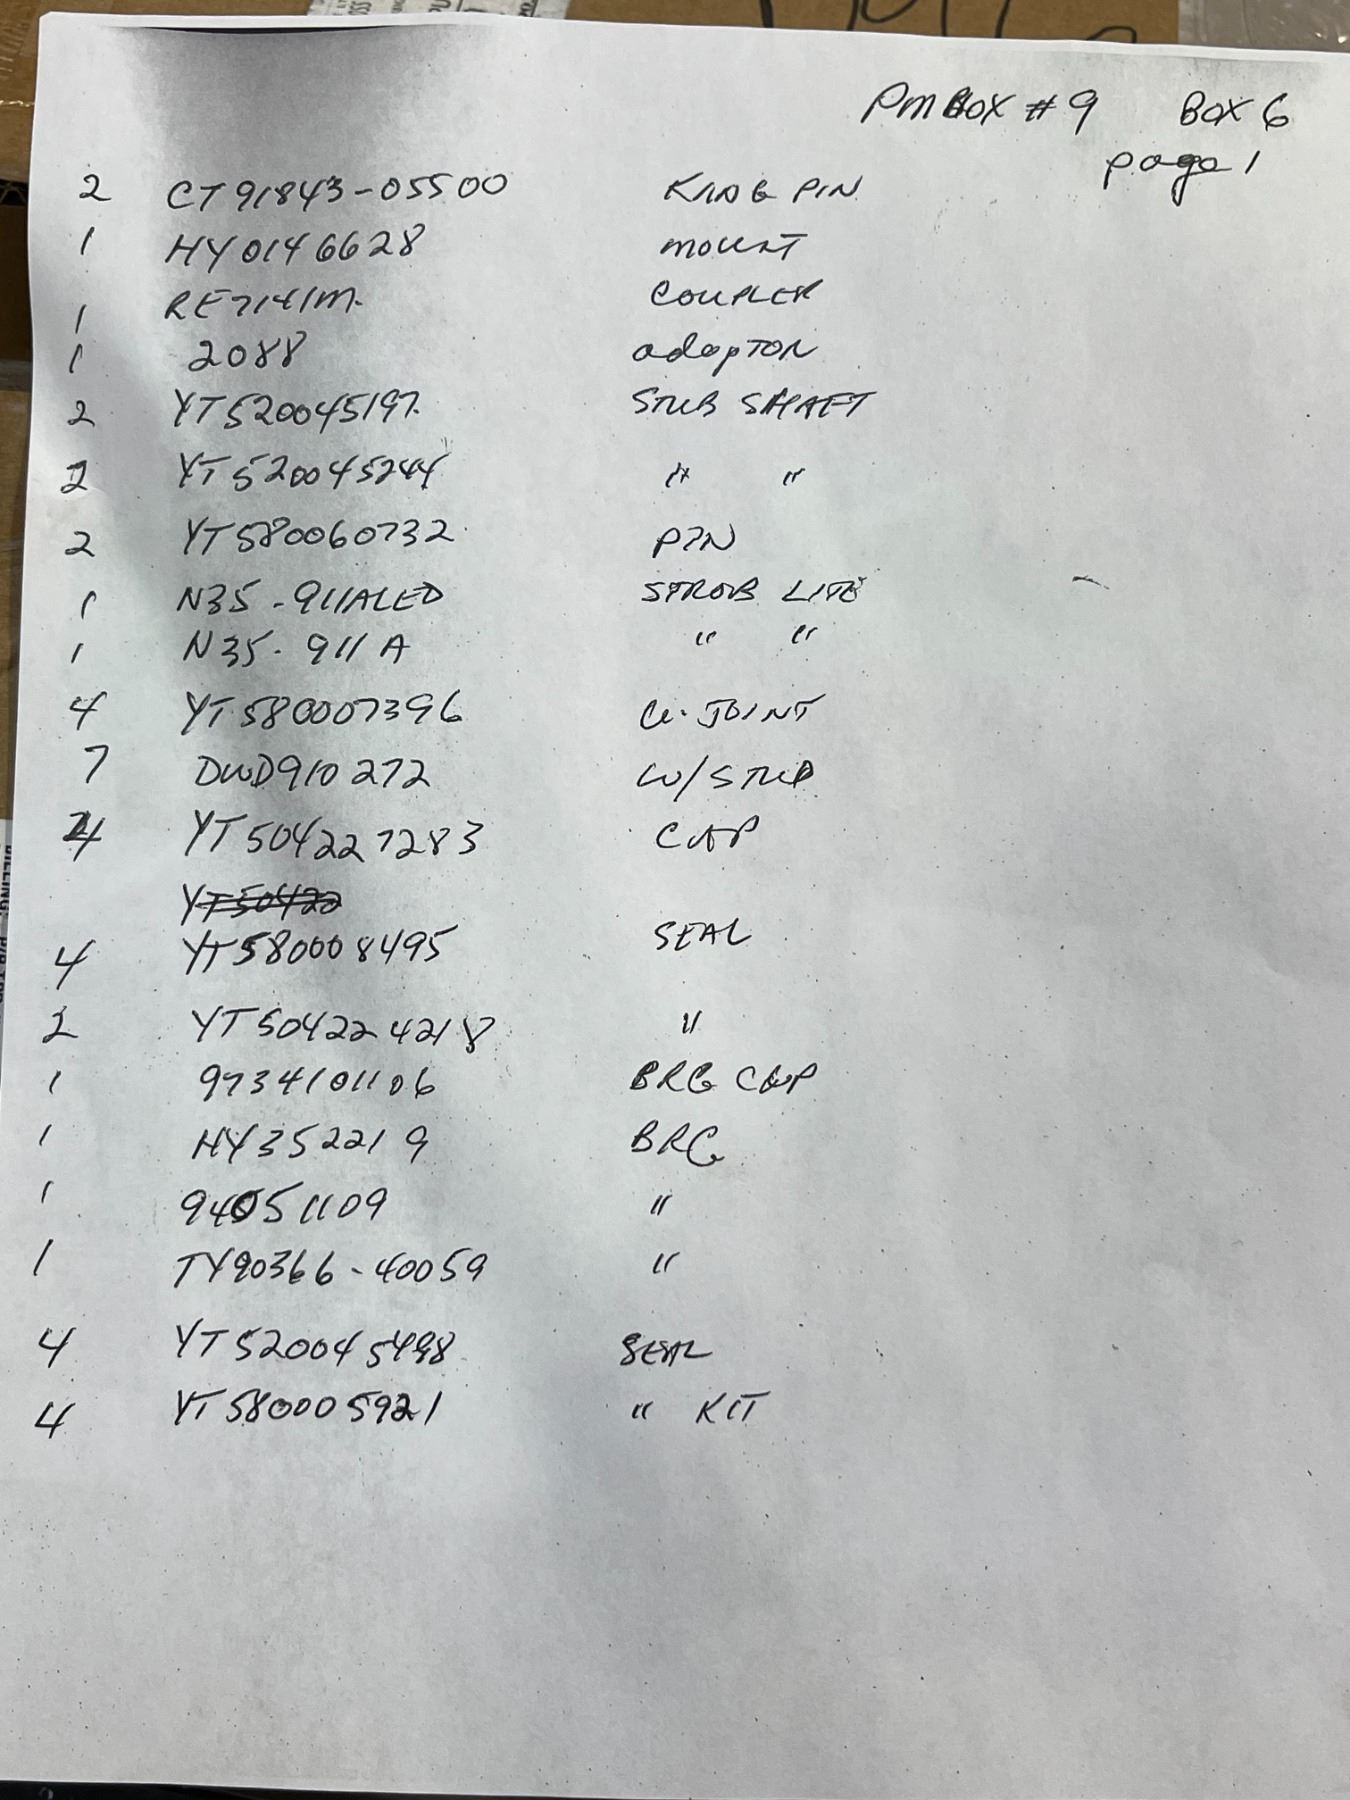 PM BOX # 9 BOX 6
page 1
2 CT91843-05500 KING PIN
1 HY0146628 MOUNT
1 RE7141M. COUPLER
1 2088 adapTOR
2 YT520045197. STUB SHAFT
2 YT520045244 " "
2 YT580060732 PIN
1 N35-911ALED STROB LITE
1 N35-911A " "
4 YT580007396 U-JOINT
7 DWD910272 W/STUD
4 YT504227283 CAP
YT50422
4 YT580008495 SEAL
2 YT504224218 "
1 9734101106 BRG CUP
1 HY352219 BRG
1 94051109 "
1 TY90366-40059 "
4 YT520045498 SEAL
4 YT580005921 " KIT